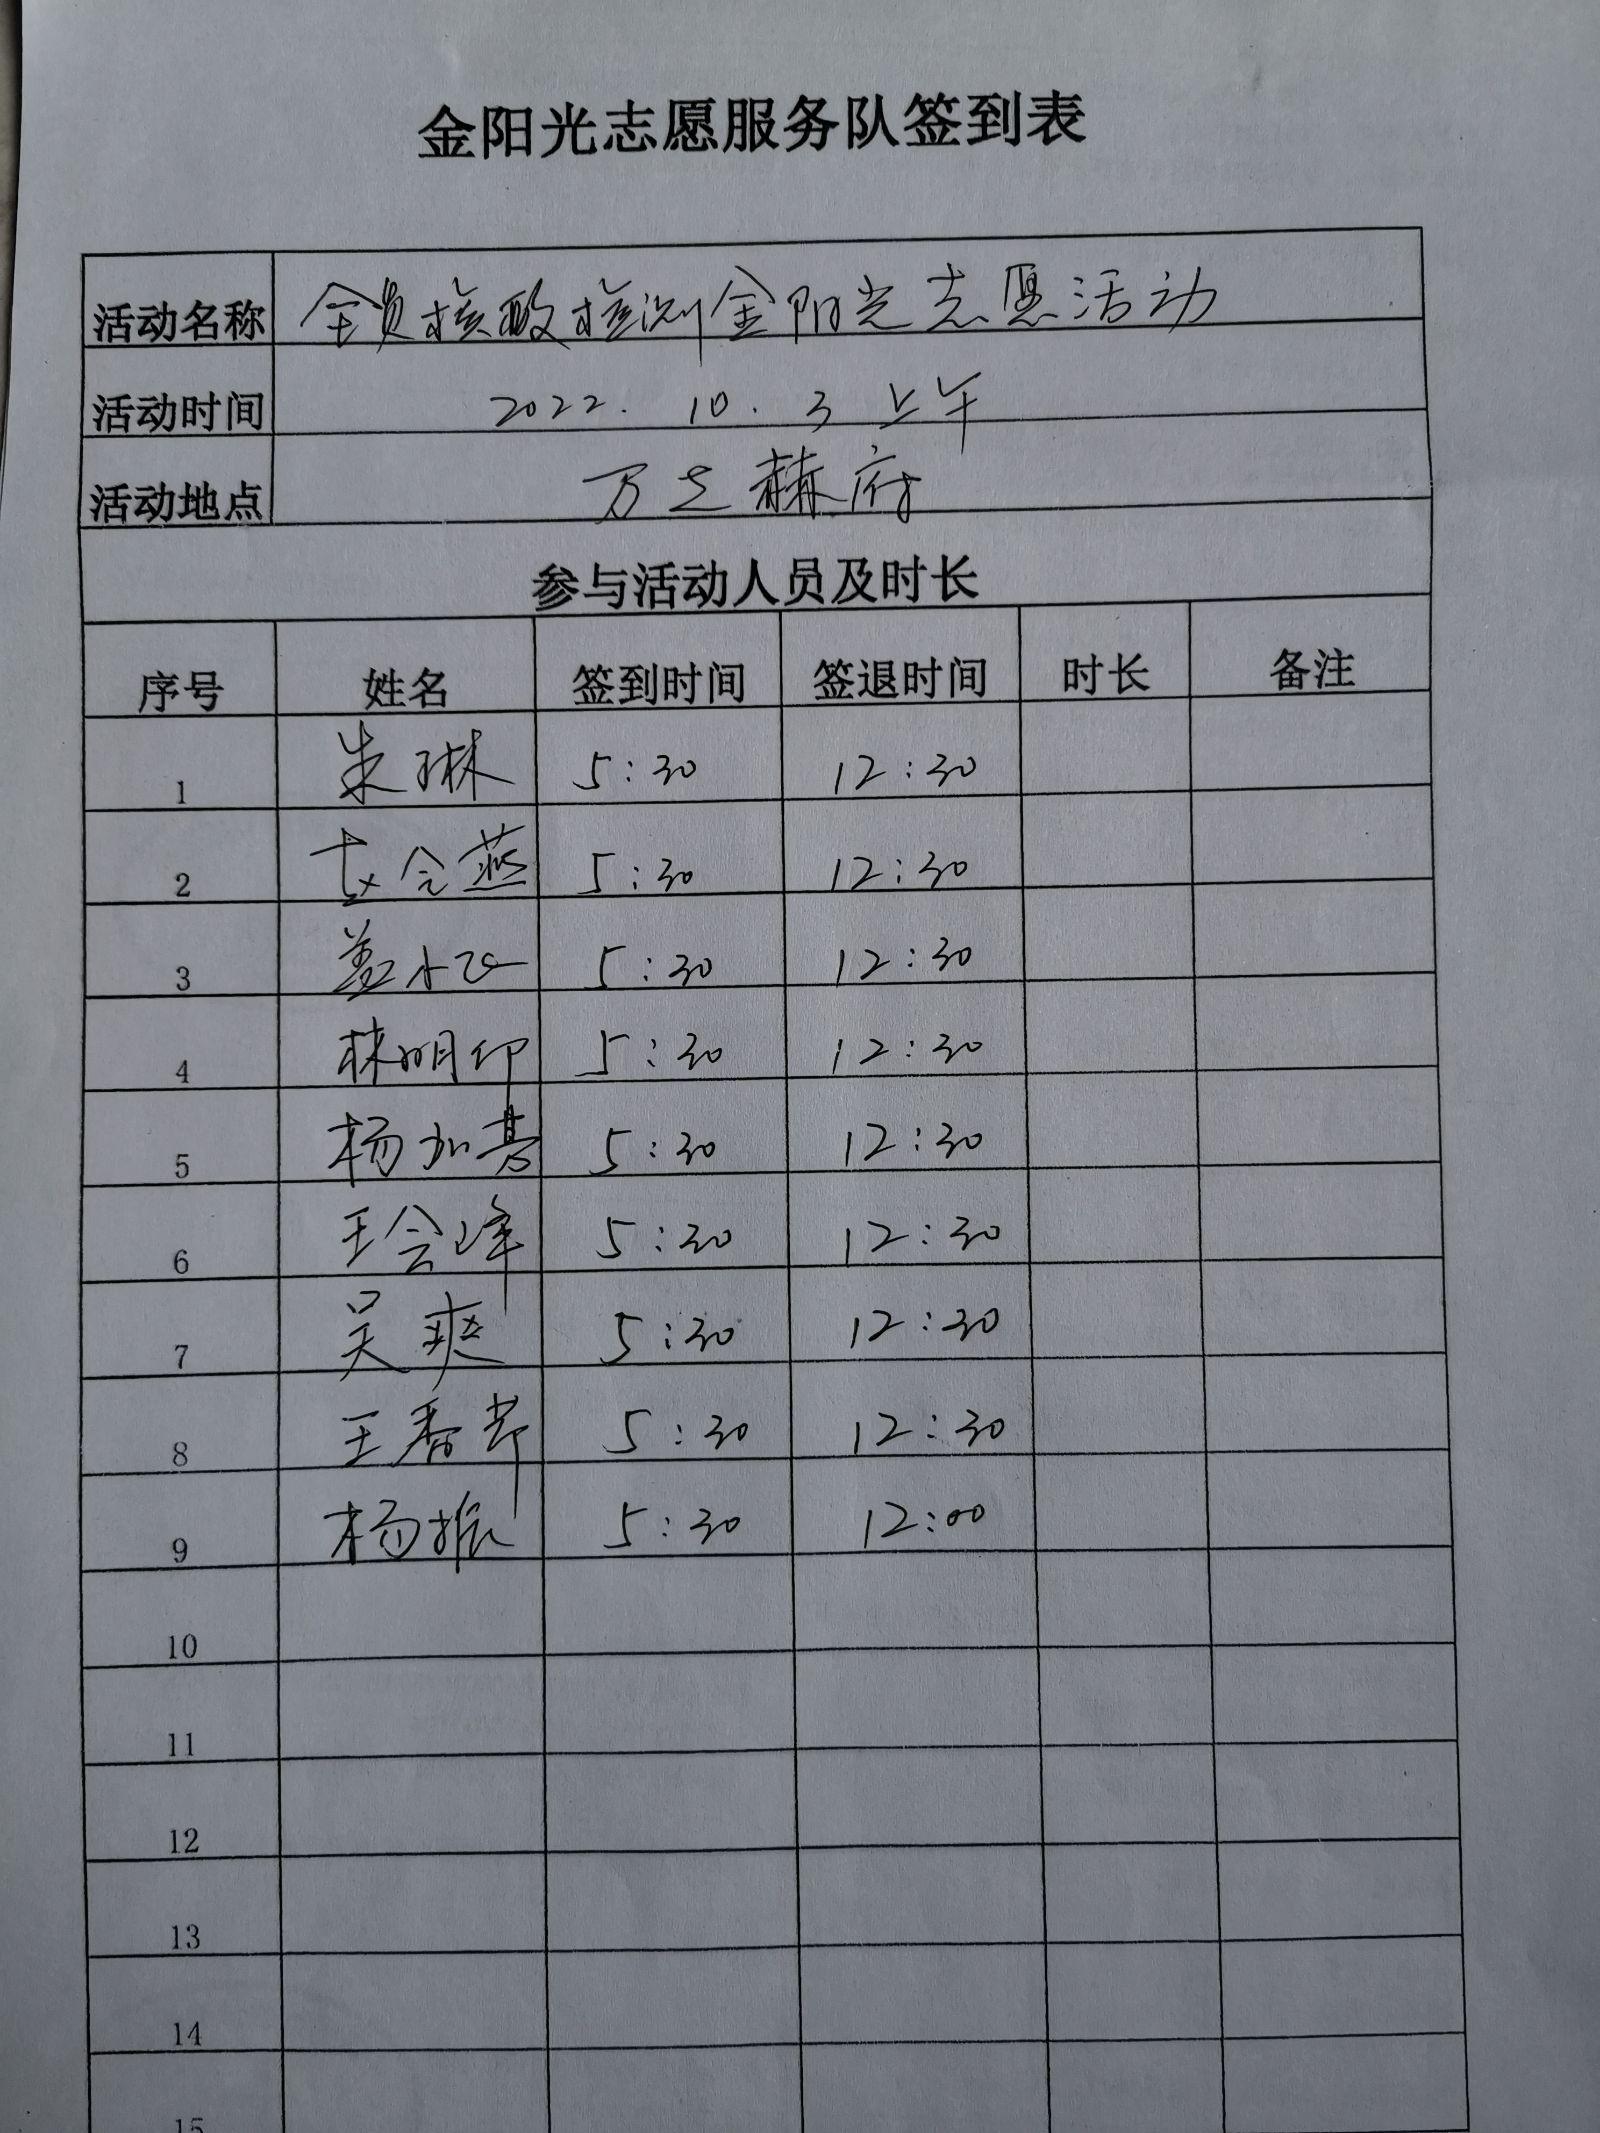 金阳光志愿服务队签到表
活动名称 全员核酸检测金阳光志愿活动
活动时间 2022.10.3上午
活动地点 万之赫府
参与活动人员及时长
序号 姓名 签到时间 签退时间 时长 备注
1 朱琳 5:30 12:30
2 赵会燕 5:30 12:30
3 盖小飞 5:30 12:30
4 林明印 5:30 12:30
5 杨加芳 5:30 12:30
6 王会峰 5:30 12:30
7 吴爽 5:30 12:30
8 王香芹 5:30 12:30
9 杨振 5:30 12:00
10
11
12
13
14
15